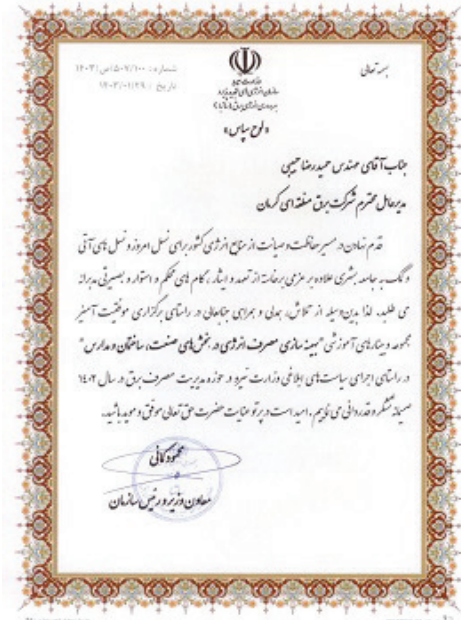 بسمه تعالی
شماره: ۵۰۷/۱۰۰/ص/۱۴۰۳
تاریخ: ۱۴۰۳/۰۱/۲۹
وزارت نیرو
سازمان انرژی‌های تجدیدپذیر و
بهره‌وری انرژی برق (ساتبا)
«لوح سپاس»
جناب آقای مهندس حمیدرضا حبیبی
مدیرعامل محترم شرکت برق منطقه‌ای کرمان
قدم نهادن در مسیر حفاظت و صیانت از منابع انرژی کشور برای نسل امروز و نسل‌های آتی
و کمک به جامعه بشری علاوه بر عزمی برخاسته از تعهد و ایثار، گام‌های محکم و استوار و بصیرتی مدبرانه
می طلبد. لذا بدین وسیله از تلاش، همدلی و همراهی جنابعالی در راستای برگزاری موفقیت آمیز
مجموعه وبینارهای آموزشی "بهینه سازی مصرف انرژی در بخش‌های صنعت، ساختمان و مدارس"
در راستای اجرای سیاست‌های ابلاغی وزارت نیرو در حوزه مدیریت مصرف برق در سال ۱۴۰۲
صمیمانه تشکر و قدردانی می نماییم. امید است در پرتو عنایات حضرت حق تعالی موفق و موید باشید.
محمود کمانی
معاون وزیر و رئیس سازمان